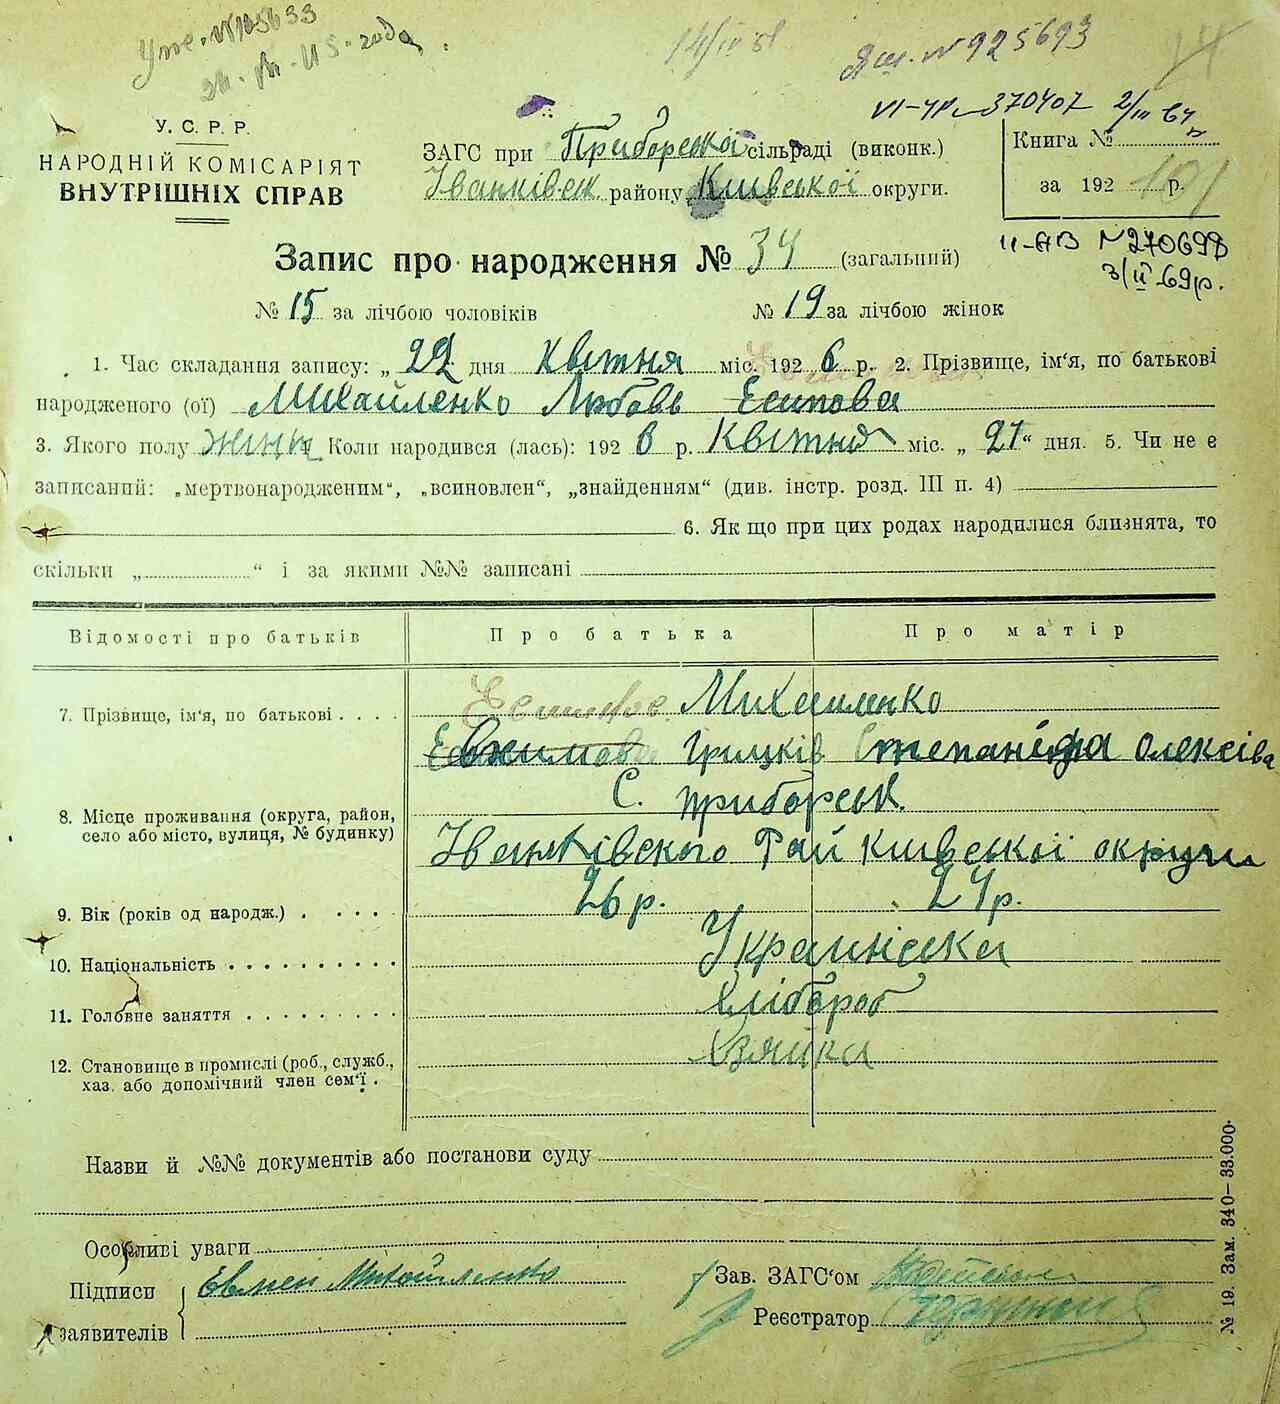 № 925693
VI-УР 370407 2/III 64
У. С. Р. Р.
НАРОДНІЙ КОМІСАРІЯТ
ВНУТРІШНІХ СПРАВ
ЗАГС при Приборській сільраді (виконк.)
Іванківськ. району Київської округи.
Книга №
за 192 р.
II-АВ №270698
3/II 69р.
Запис про народження № 34 (загальний)
№ 15 за лічбою чоловіків № 19 за лічбою жінок
1. Час складання запису: „ 22 дня Квітня міс. 192 6 р. 2. Прізвище, ім'я, по батькові
народженого (ої) Михайленко Любовь Есипова
3. Якого полу жіноч Коли народився (лась): 192 6 р. Квітня міс. „ 21 “ дня. 5. Чи не є
записаний: „мертвонародженим“, „всиновлен“, „знайденням“ (див. інстр. розд. III п. 4)
6. Як що при цих родах народилися близнята, то
скільки „ “ і за якими №№ записані
Відомості про батьків Про батька Про матір
7. Прізвище, ім'я, по батькові Михайленко
Грицків Степаніда Олексіва
8. Місце проживання (округа, район,
село або місто, вулиця, № будинку)
С. Приборськ.
Іванківского Рай Київської округи
9. Вік (років од народж.) 26 р. 24 р.
10. Національність Украінська
11. Головне заняття хлібороб
12. Становище в промислі (роб., служб.,
хаз. або допомічний член сем'ї.
Назви й №№ документів або постанови суду
Особливі уваги
Підписи
заявителів
Евмен Михайленко
Зав. ЗАГС'ом
Реєстратор
№ 19. Зам. 340—33.000.